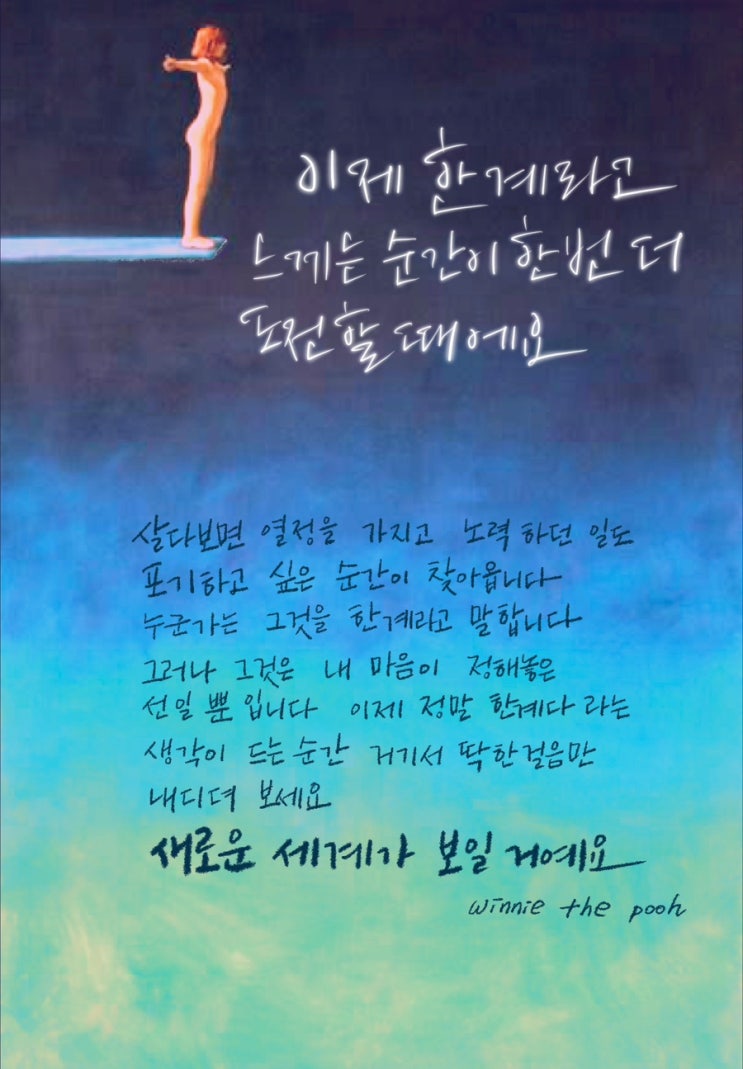 이제 한계라고
느끼는 순간이 한번 더
도전할 때에요
살다보면 열정을 가지고 노력하던 일도
포기하고 싶은 순간이 찾아옵니다
누군가는 그것을 한계라고 말합니다
그러나 그것은 내 마음이 정해놓은
선일 뿐 입니다 이제 정말 한계다 라는
생각이 드는 순간 거기서 딱 한걸음만
내디뎌 보세요
새로운 세계가 보일 거예요
winnie the pooh